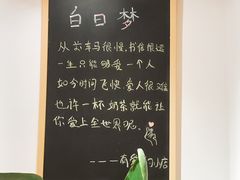 白日梦
从前车马很慢,书信很远
一生只能够爱一个人
如今时间飞快,爱人很难
也许一杯奶茶就能让
你爱上全世界呢。
小店